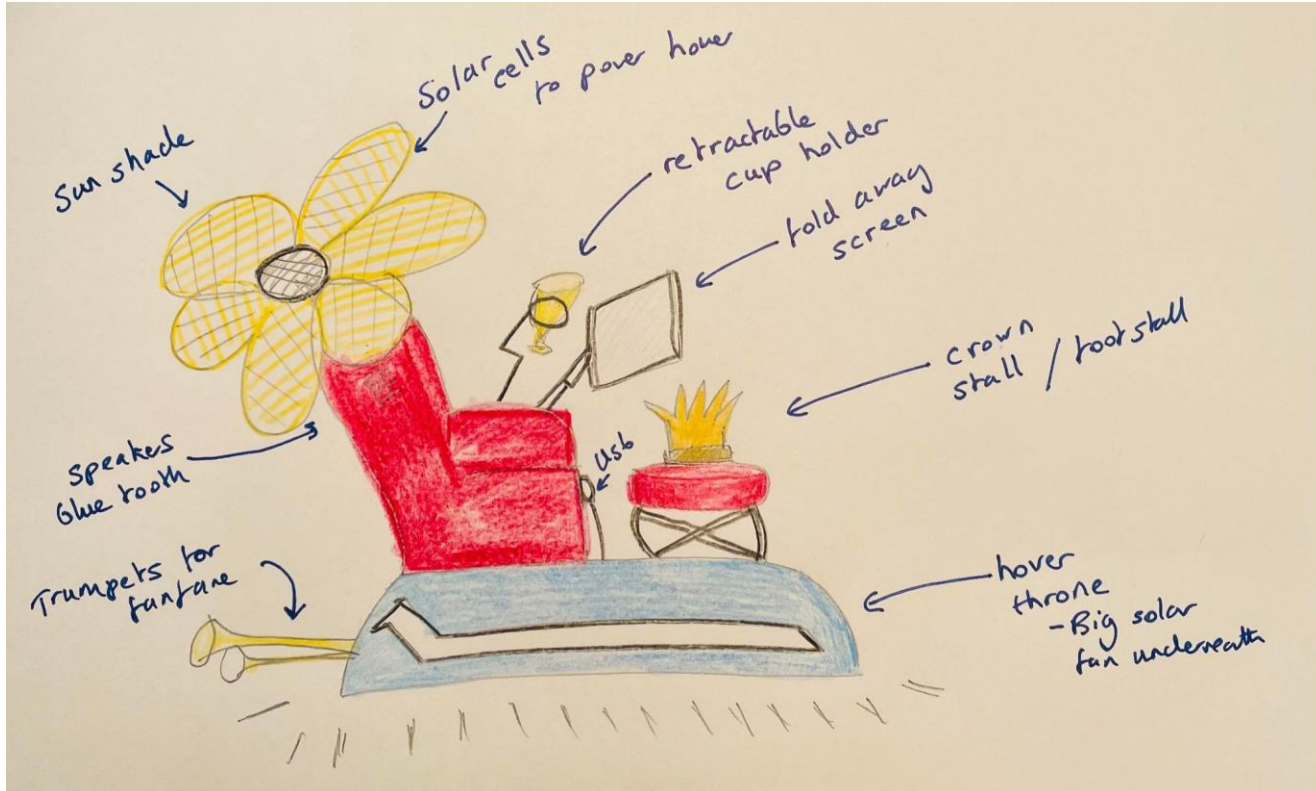 Solar cells
to power hover
Sun shade
retractable
cup holder
fold away
screen
crown
stall / foot stall
speakers
blue tooth
Usb
Trumpets for
fanfare
hover
throne
- Big solar
fan underneath